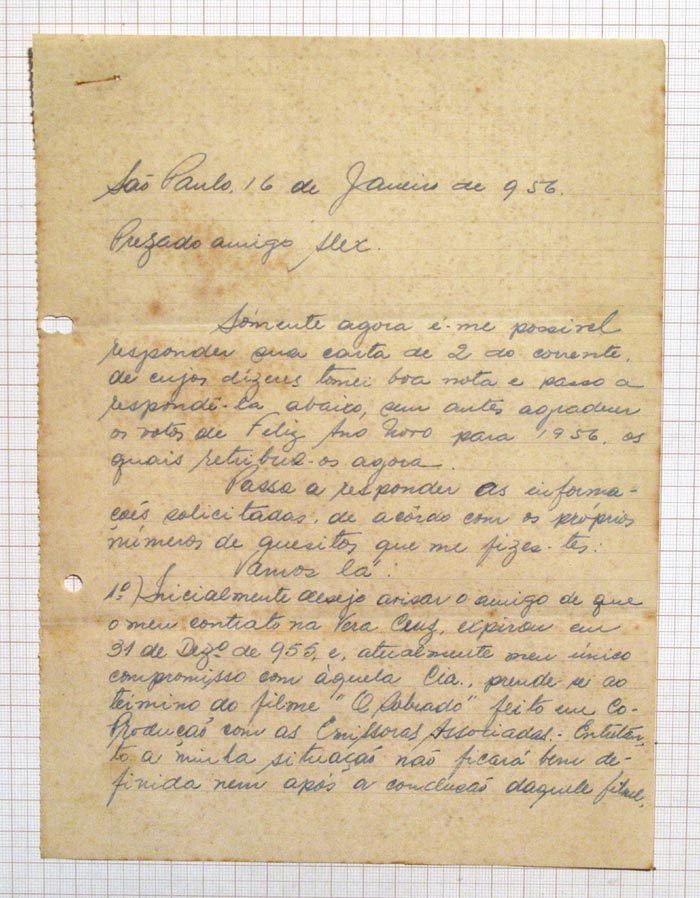 São Paulo, 16 de Janeiro de 956.
Prezado amigo Alex.
Sómente agora é-me possivel
responder sua carta de 2 do corrente,
de cujos dizeres tomei boa nota e passo a
respondê-la abaixo, sem antes agradecer
os votos de Feliz Ano Novo para 1956, os
quais retribuo-os agora.
Passo a responder as informa-
coēs solicitadas, de acôrdo com os próprios
números de quesitos que me fizes-tes:
Vamos lá:
1º) Inicialmente desejo avisar o amigo de que
o meu contrato na Vera Cruz, expirou em
31 de Dezº de 955, e, atualmente meu único
compromisso com àquela Cia., prende-se ao
término do filme "O Sobrado" feito em Co-
Produção com as Emissoras Associadas. Entutan-
to a minha situação não ficará bem de-
finida nem após a conclusão daquele filme,